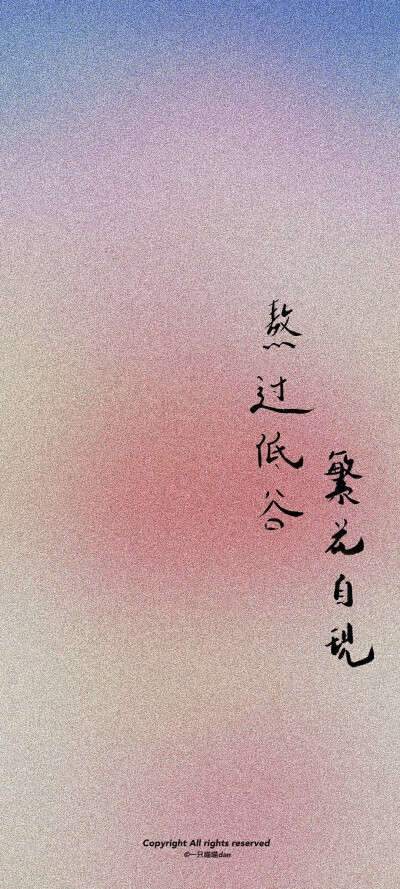 熬过低谷
繁花自现
Copyright All rights reserved
©一只喵喵dan